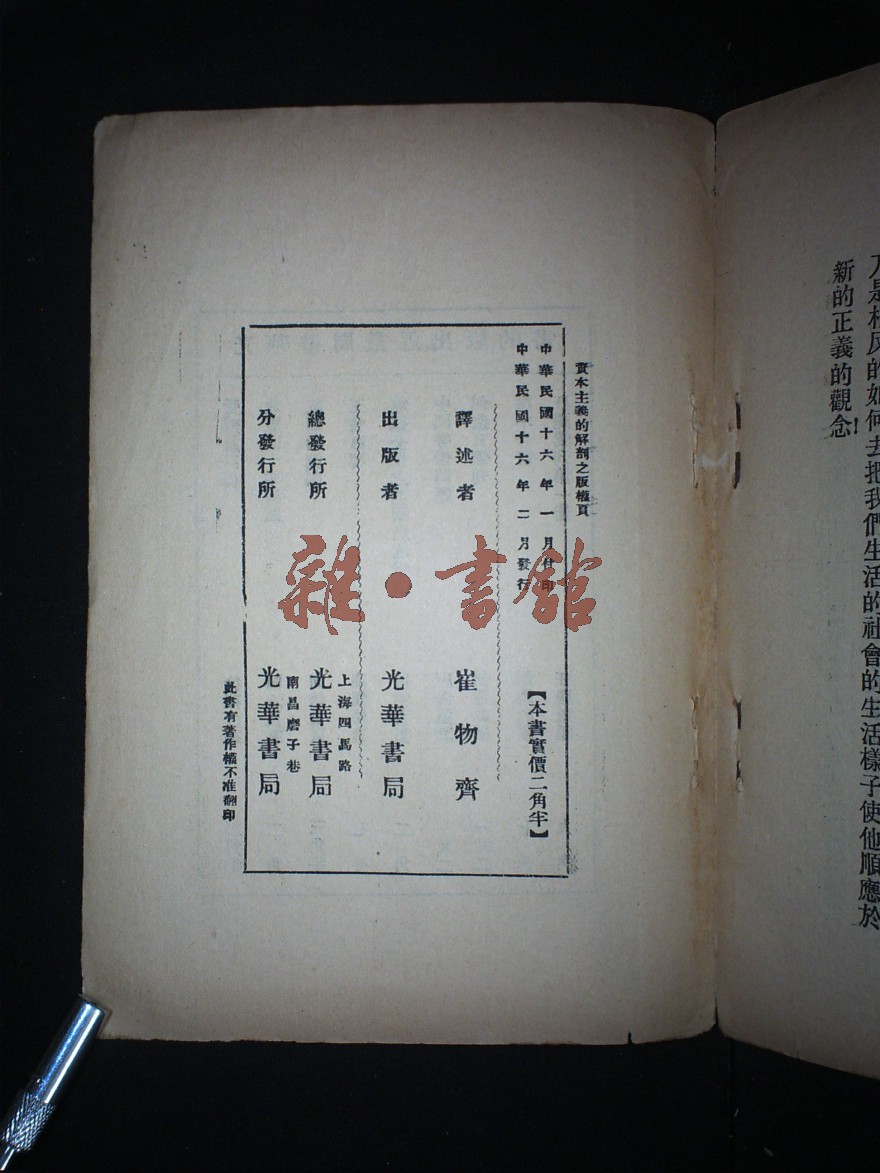 乃是相反的如何去把我們生活的社會的生活樣子使他順應於
新的正義的觀念!
資本主義的解剖之版權頁
中華民國十六年一月付印
中華民國十六年二月發行
【本書實價二角半】
譯述者 崔物齊
出版者 光華書局
上海四馬路
總發行所 光華書局
南昌磨子巷
分發行所 光華書局
此書有著作權不准翻印
雜·書館